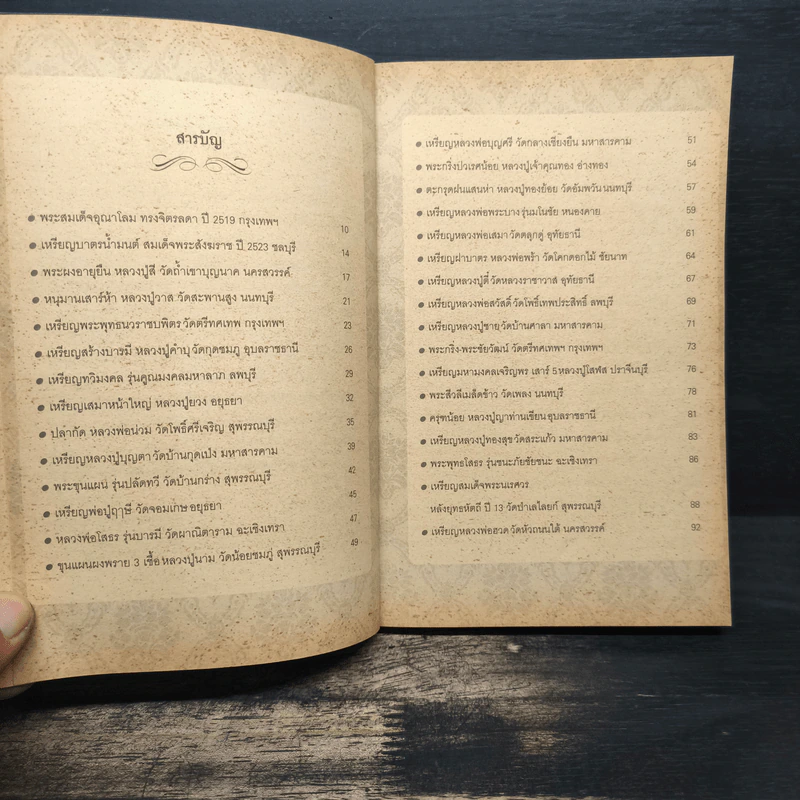 สารบัญ
พระสมเด็จอุณาโลม ทรงจิตรลดา ปี 2519 กรุงเทพฯ 10
เหรียญบาตรน้ำมนต์ สมเด็จพระสังฆราช ปี 2523 ชลบุรี 14
พระผงอายุยืน หลวงปู่สี วัดถ้ำเขาบุญนาค นครสวรรค์ 17
หนุมานเสาร์ห้า หลวงปู่วาส วัดสะพานสูง นนทบุรี 21
เหรียญพระพุทธนวราชบพิตร วัดตรีทศเทพ กรุงเทพฯ 23
เหรียญสร้างบารมี หลวงปู่คำบุ วัดกุดชมภู อุบลราชธานี 26
เหรียญทวิมงคล รุ่นคูณมงคลมหาลาภ ลพบุรี 29
เหรียญเสมาหน้าใหญ่ หลวงปู่ยวง อยุธยา 32
ปลากัด หลวงพ่อน่วม วัดโพธิ์ศรีเจริญ สุพรรณบุรี 35
เหรียญหลวงปู่บุญตา วัดบ้านกุดเป่ง มหาสารคาม 39
พระขุนแผน รุ่นปลัดทวี วัดบ้านกร่าง สุพรรณบุรี 42
เหรียญพ่อปู่ฤาษี วัดจอมเกษ อยุธยา 45
หลวงพ่อโสธร รุ่นบารมี วัดผาณิตาราม ฉะเชิงเทรา 47
ขุนแผนผงพราย 3 เชื้อ หลวงปู่นาม วัดน้อยชมภู่ สุพรรณบุรี 49
เหรียญหลวงพ่อบุญศรี วัดกลางเชียงยืน มหาสารคาม 51
พระกริ่งปวเรศน้อย หลวงปู่เจ้าคุณทอง อ่างทอง 54
ตะกรุดฝนแสนห่า หลวงปู่ทองย้อย วัดอัมพวัน นนทบุรี 57
เหรียญหลวงพ่อพระบาง รุ่นมโนชัย หนองคาย 59
เหรียญหลวงพ่อเสมา วัดตลุกดู่ อุทัยธานี 61
เหรียญฝาบาตร หลวงพ่อพร้า วัดโคกดอกไม้ ชัยนาท 64
เหรียญหลวงปู่ตี๋ วัดหลวงราชาวาส อุทัยธานี 67
เหรียญหลวงพ่อสวัสดิ์ วัดโพธิ์เทพประสิทธิ์ ลพบุรี 69
เหรียญหลวงปู่ชาย วัดบ้านศาลา มหาสารคาม 71
พระกริ่ง-พระชัยวัฒน์ วัดตรีทศเทพฯ กรุงเทพฯ 73
เหรียญมหามงคลเจริญพร เสาร์ 5 หลวงปู่โสฬส ปราจีนบุรี 76
พระสิวลีเมล็ดข้าว วัดเพลง นนทบุรี 78
ครุฑน้อย หลวงปู่ญาท่านเขียน อุบลราชธานี 81
เหรียญหลวงปู่ทองสุข วัดสระแก้ว มหาสารคาม 83
พระพุทธโสธร รุ่นชนะภัยชัยชนะ ฉะเชิงเทรา 86
เหรียญสมเด็จพระนเรศวร
หลังยุทธหัตถี ปี 13 วัดป่าเลไลยก์ สุพรรณบุรี 88
เหรียญหลวงพ่อฮวด วัดหัวถนนใต้ นครสวรรค์ 92